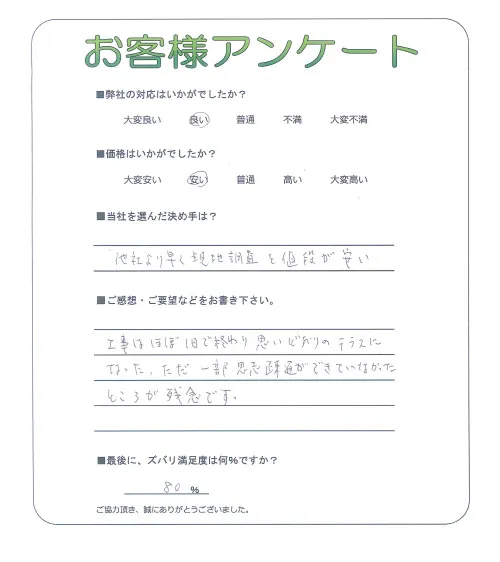 お客様アンケート
■弊社の対応はいかがでしたか?
大変良い 良い 普通 不満 大変不満
■価格はいかがでしたか?
大変安い 安い 普通 高い 大変高い
■当社を選んだ決め手は?
他社より早く現地調査と値段が安い
■ご感想・ご要望などをお書き下さい。
工事はほぼ1日で終わり思いどおりのテラスに
なった。ただ一部意志疎通ができていなかった
ところが残念です。
■最後に、ズバリ満足度は何%ですか?
80 %
ご協力頂き、誠にありがとうございました。